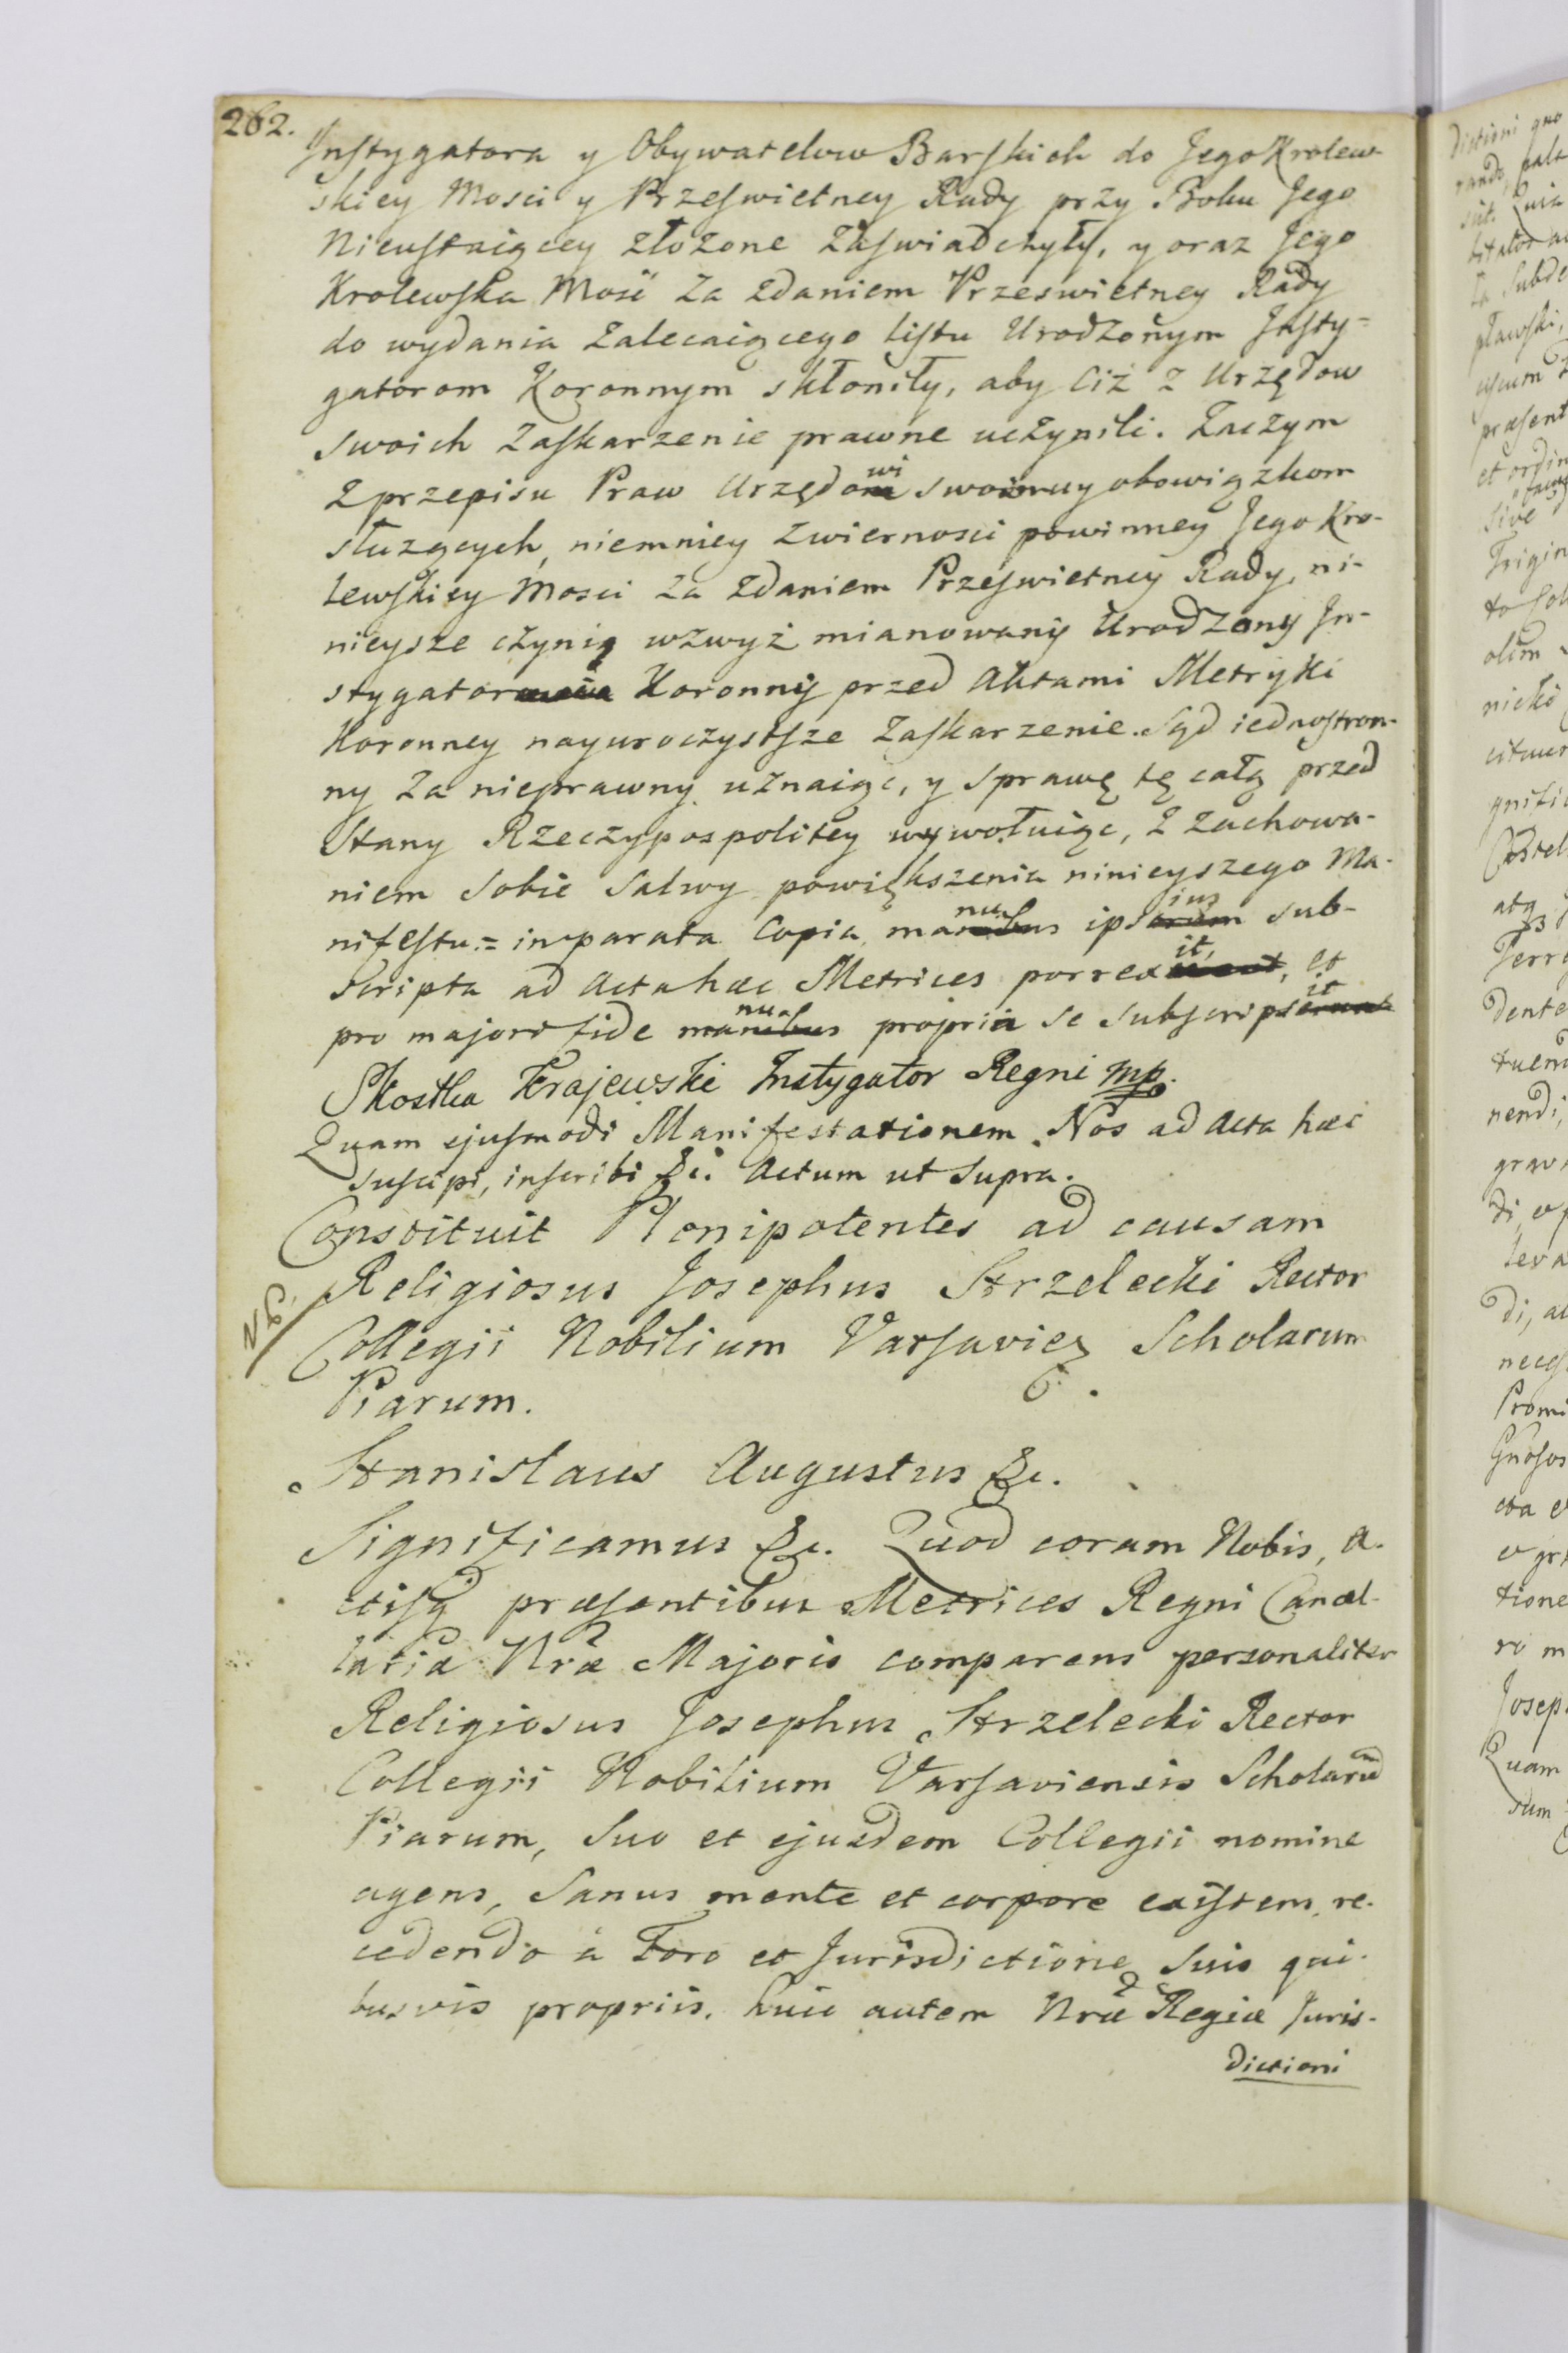 262.
Instygatora y Obywatelow Barskich do Jego Krolew-
skiey Mosci y Przeswietney Rady przy Boku Jego
Nieustaiącey złożone zaswiadczyły, y oraz Jego
Krolewska Mość za zdaniem Przeswietney Rady
do wydania zalecaiącego listu Urodzonym Insty=
gatorom Koronnym skłoniły, aby Ciż z Urzędow
swoich zaskarzenie prawne uczynili. Zaczym
z przepisu Praw Urzędowi swoimuy obowiązkom
służących, niemniey z wiernosci powinney Jego Kro-
lewskiey Mosci za zdaniem Przeswietney Rady, ni-
nieysze czynią wzwyż mianowany Urodzony In-
stygator Koronny przed Aktami Metryki
Koronney nayuroczystsze Zaskarzenie. Sąd iednostron-
ny za nieprawny uznaiąc, y sprawę tę całą przed
Stany Rzeczypospolitey wywołuiąc, z zachowa-
niem sobie salwy powiększenia ninieyszego Ma-
nifestu = in parata Copia, manu ipsius sub-
scripta ad Acta hæc Metrices porrexit, et
pro majori fide manu propria se subscripsit
SKostka Krajewski Instygator Regni mp.
Quam ejusmodi Manifestationem Nos ad Acta hæc
suscipi, inscribi &c. Actum ut supra.
Constituit Plenipotentes ad causam
Religiosus Josephus Strzelecki Rector
NB.
Collegii Nobilium Varsavien Scholarum
Piarum.
Stanislaus Augustus &c.
Significamus &c. Quod coram Nobis, A-
ctisq præsentibus Metrices Regni Cancel-
lariæ Nræ Majoris comparens personaliter
Religiosus Josephus Strzelecki Rector
Collegii Nobilium Varsaviensis Scholarū
Piarum, suo et ejusdem Collegii nomine
agens, sanus mente et corpore existens, re-
cedendo à Foro et Jurisdictione suis qui-
busvis propriis. huic autem Nræ Regiæ Juris-
dictioni